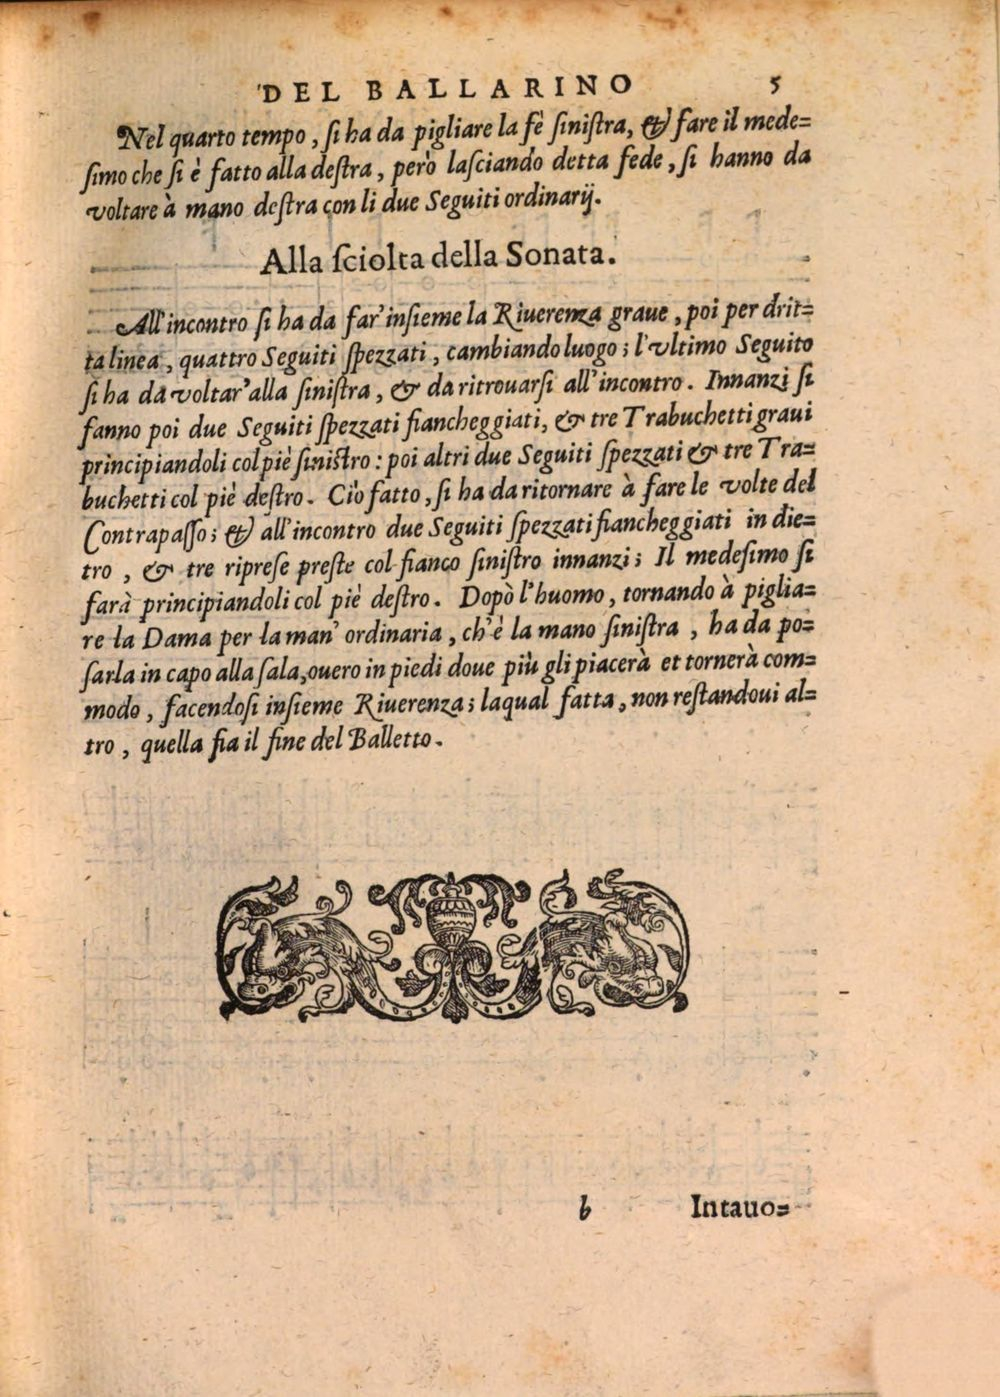 DEL BALLARINO 5
Nel quarto tempo, ſi ha da pigliare la fè ſiniſtra, & fare il mede=
ſimo che ſi è fatto alla deſtra, però laſciando detta fede, ſi hanno da
voltare à mano deſtra con li due Seguiti ordinarij.
Alla ſciolta della Sonata.
All'incontro ſi ha da far' inſieme la Riuerenza graue, poi per drit=
ta linea, quattro Seguiti ſpezzati, cambiando luogo; l'vltimo Seguito
ſi ha da voltar' alla ſiniſtra, & da ritrouarſi all'incontro. Innanzi ſi
fanno poi due Seguiti ſpezzati fiancheggiati, & tre Trabuchetti graui
principiandoli col piè ſiniſtro: poi altri due Seguiti ſpezzati & tre Tra=
buchetti col piè deſtro. Ciò fatto, ſi ha da ritornare à fare le volte del
Contrapaſſo; & all'incontro due Seguiti ſpezzati fiancheggiati in die=
tro, & tre ripreſe preſte col fianco ſiniſtro innanzi; Il medeſimo ſi
farà principiandoli col piè deſtro. Dopò l'huomo, tornando à piglia=
re la Dama per la man' ordinaria, ch'è la mano ſiniſtra, ha da po=
ſarla in capo alla ſala, ouero in piedi doue più gli piacerà et tornerà com=
modo, facendoſi inſieme Riuerenza; laqual fatta, non reſtandoui al=
tro, quella ſia il fine del Balletto.
b Intauo=